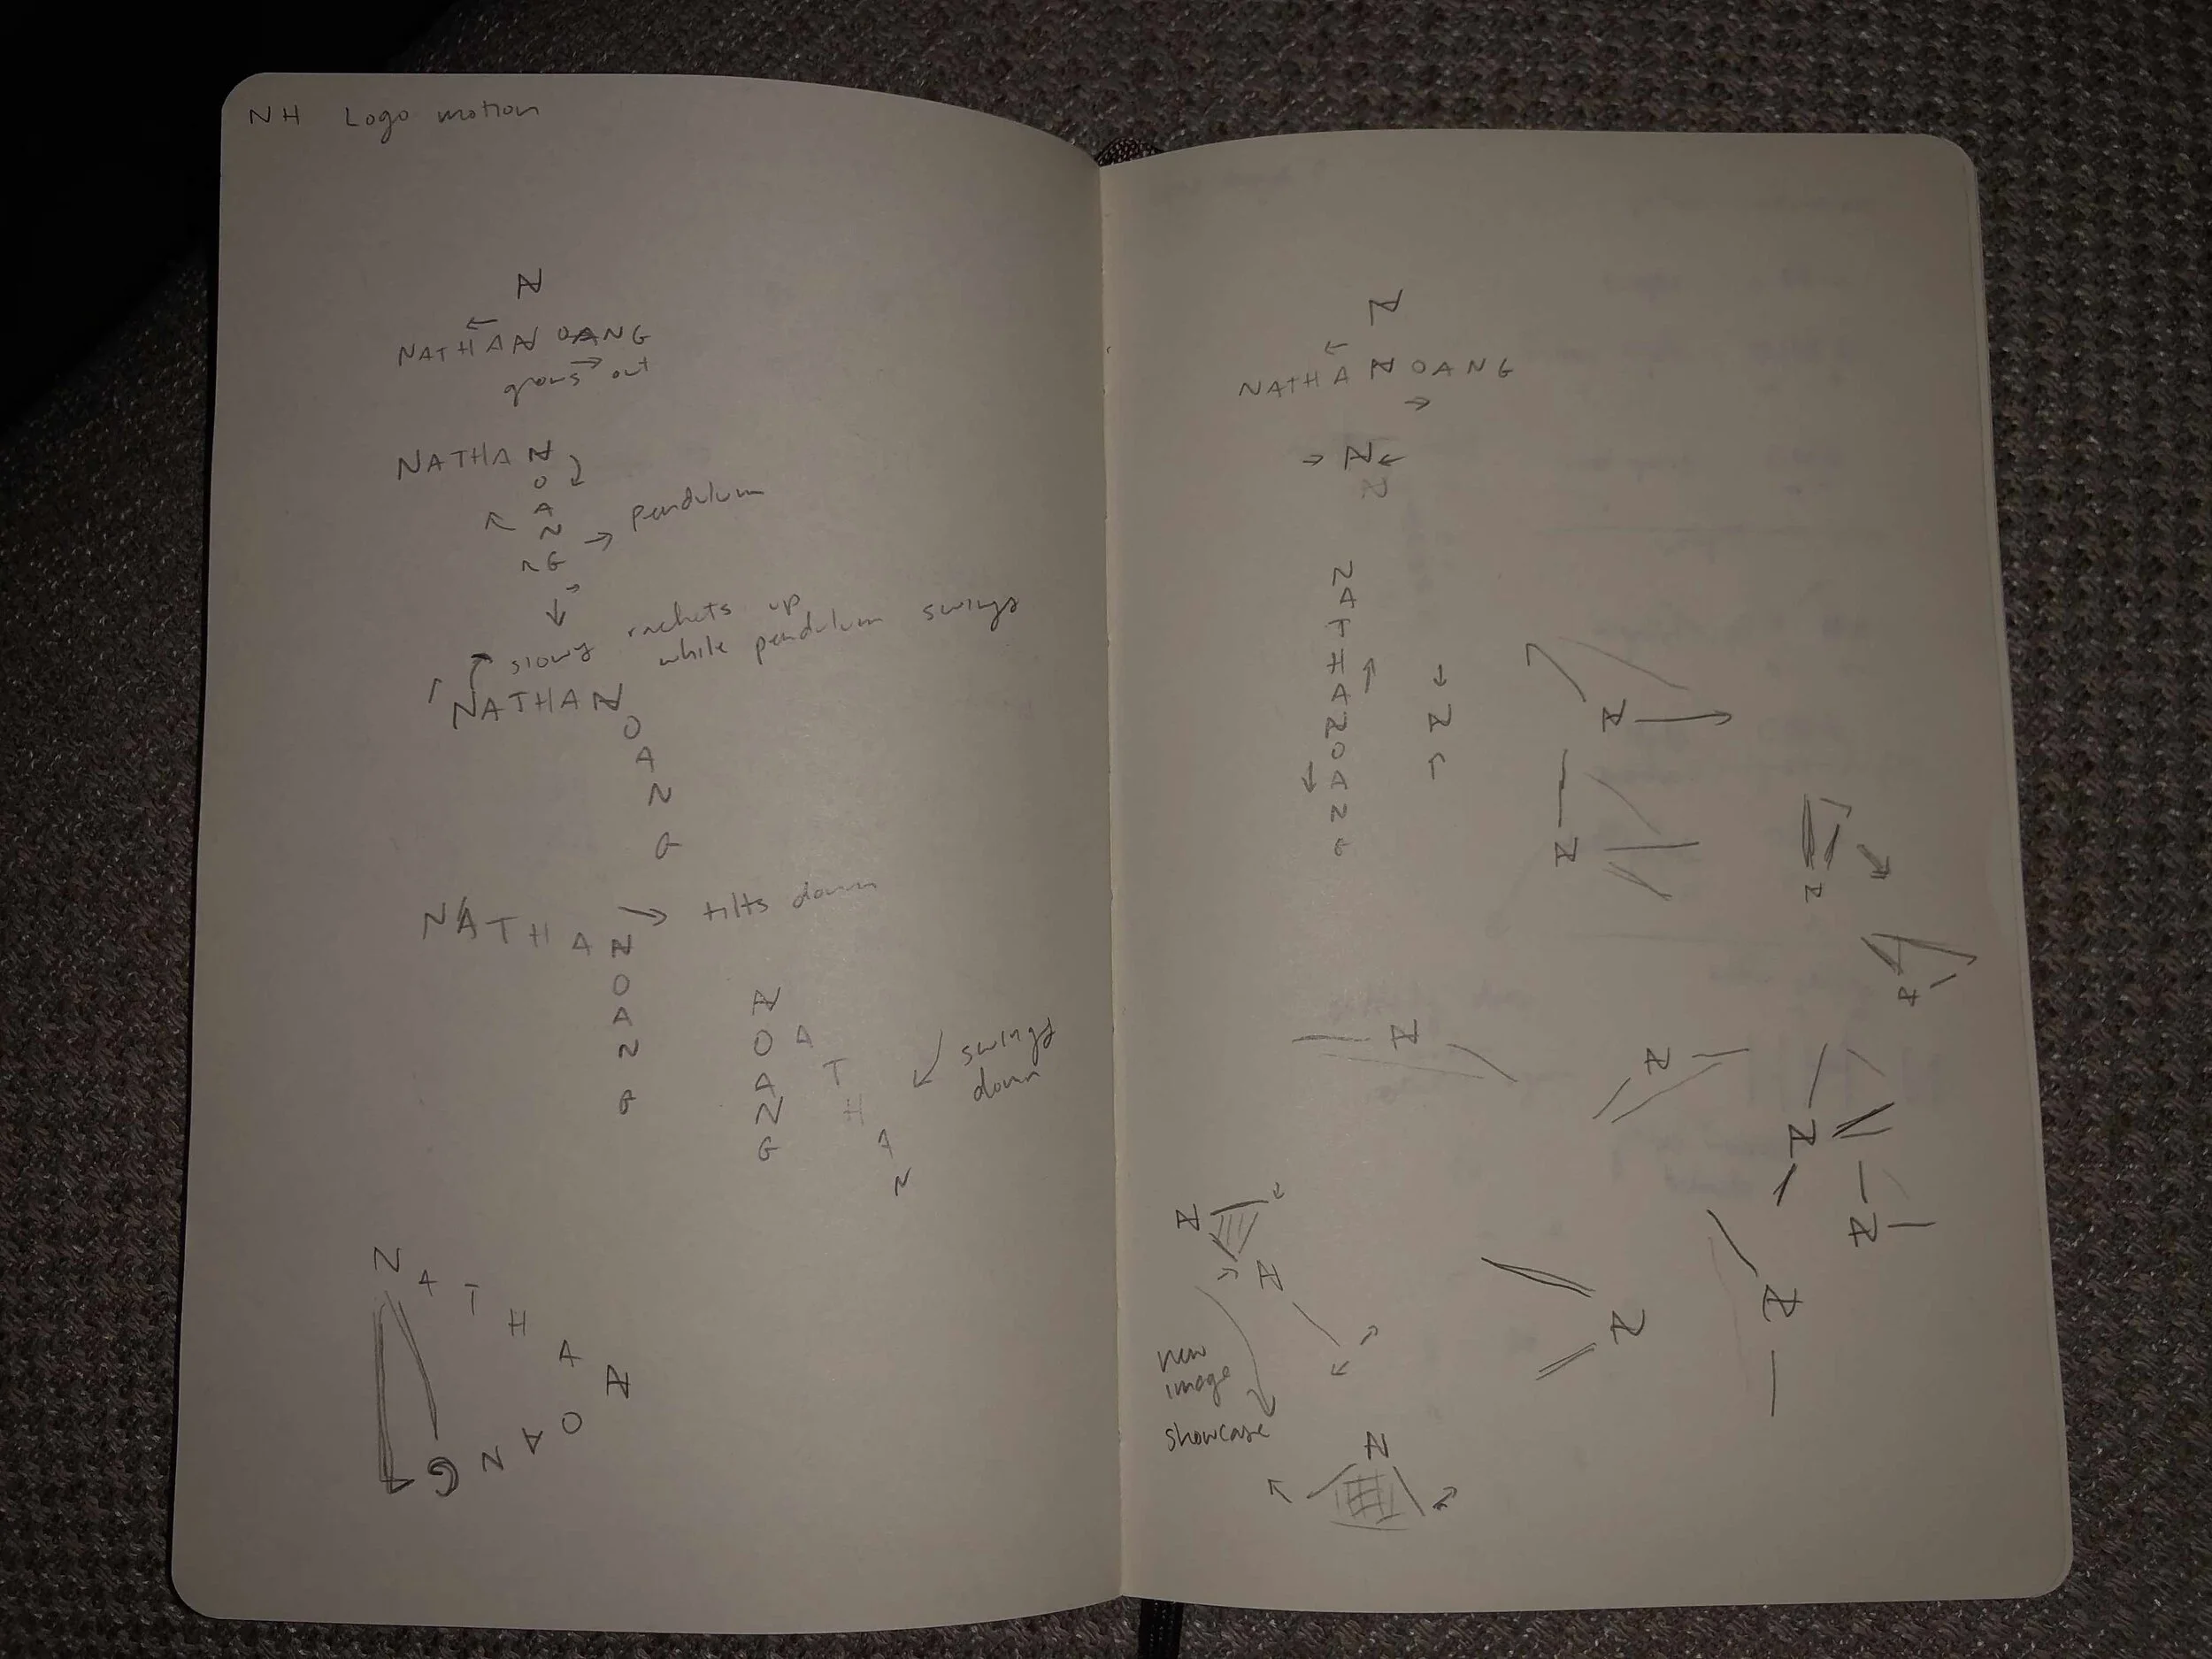 NH Logo motion
N
←
NATHAN OANG
→
grows out
NATHAN
O
A
N
G
→ pendulum
slowy rachets up
while pendulum swings
NATHAN
O
A
N
G
NATHAN
→ tilts down
O
A
N
G
N
O A
A T
N H
G A
N
swings
down
N
A
T
H
A
N
O
A
N
G
N
←
NATHAN OANG
→
→ N ←
N
N
A
T
H
A
N
O
A
N
G
↓
N
↑
N
N
N
N
N
N
N
N
N
N
N
N
new
image
showcase
N